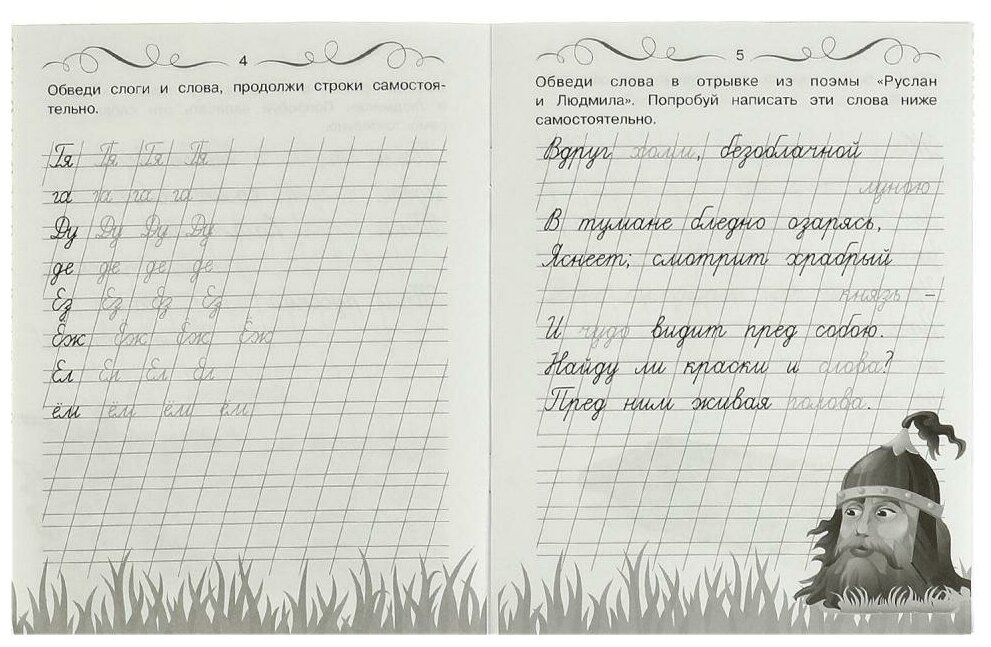 4
Обведи слоги и слова, продолжи строки самостоя-
тельно.
Гя Гя Гя Гя
га га га га
Ду Ду Ду Ду
де де де де
Ез Ез Ез Ез
Ёж Ёж Ёж Ёж
Ел Ел Ел Ел
ём ём ём ём
5
Обведи слова в отрывке из поэмы «Руслан
и Людмила». Попробуй написать эти слова ниже
самостоятельно.
Вдруг холм, безоблачной
луною
В тумане бледно озарясь,
Яснеет; смотрит храбрый
князь –
И чудо видит пред собою.
Найду ли краски и слова?
Пред ним живая голова.